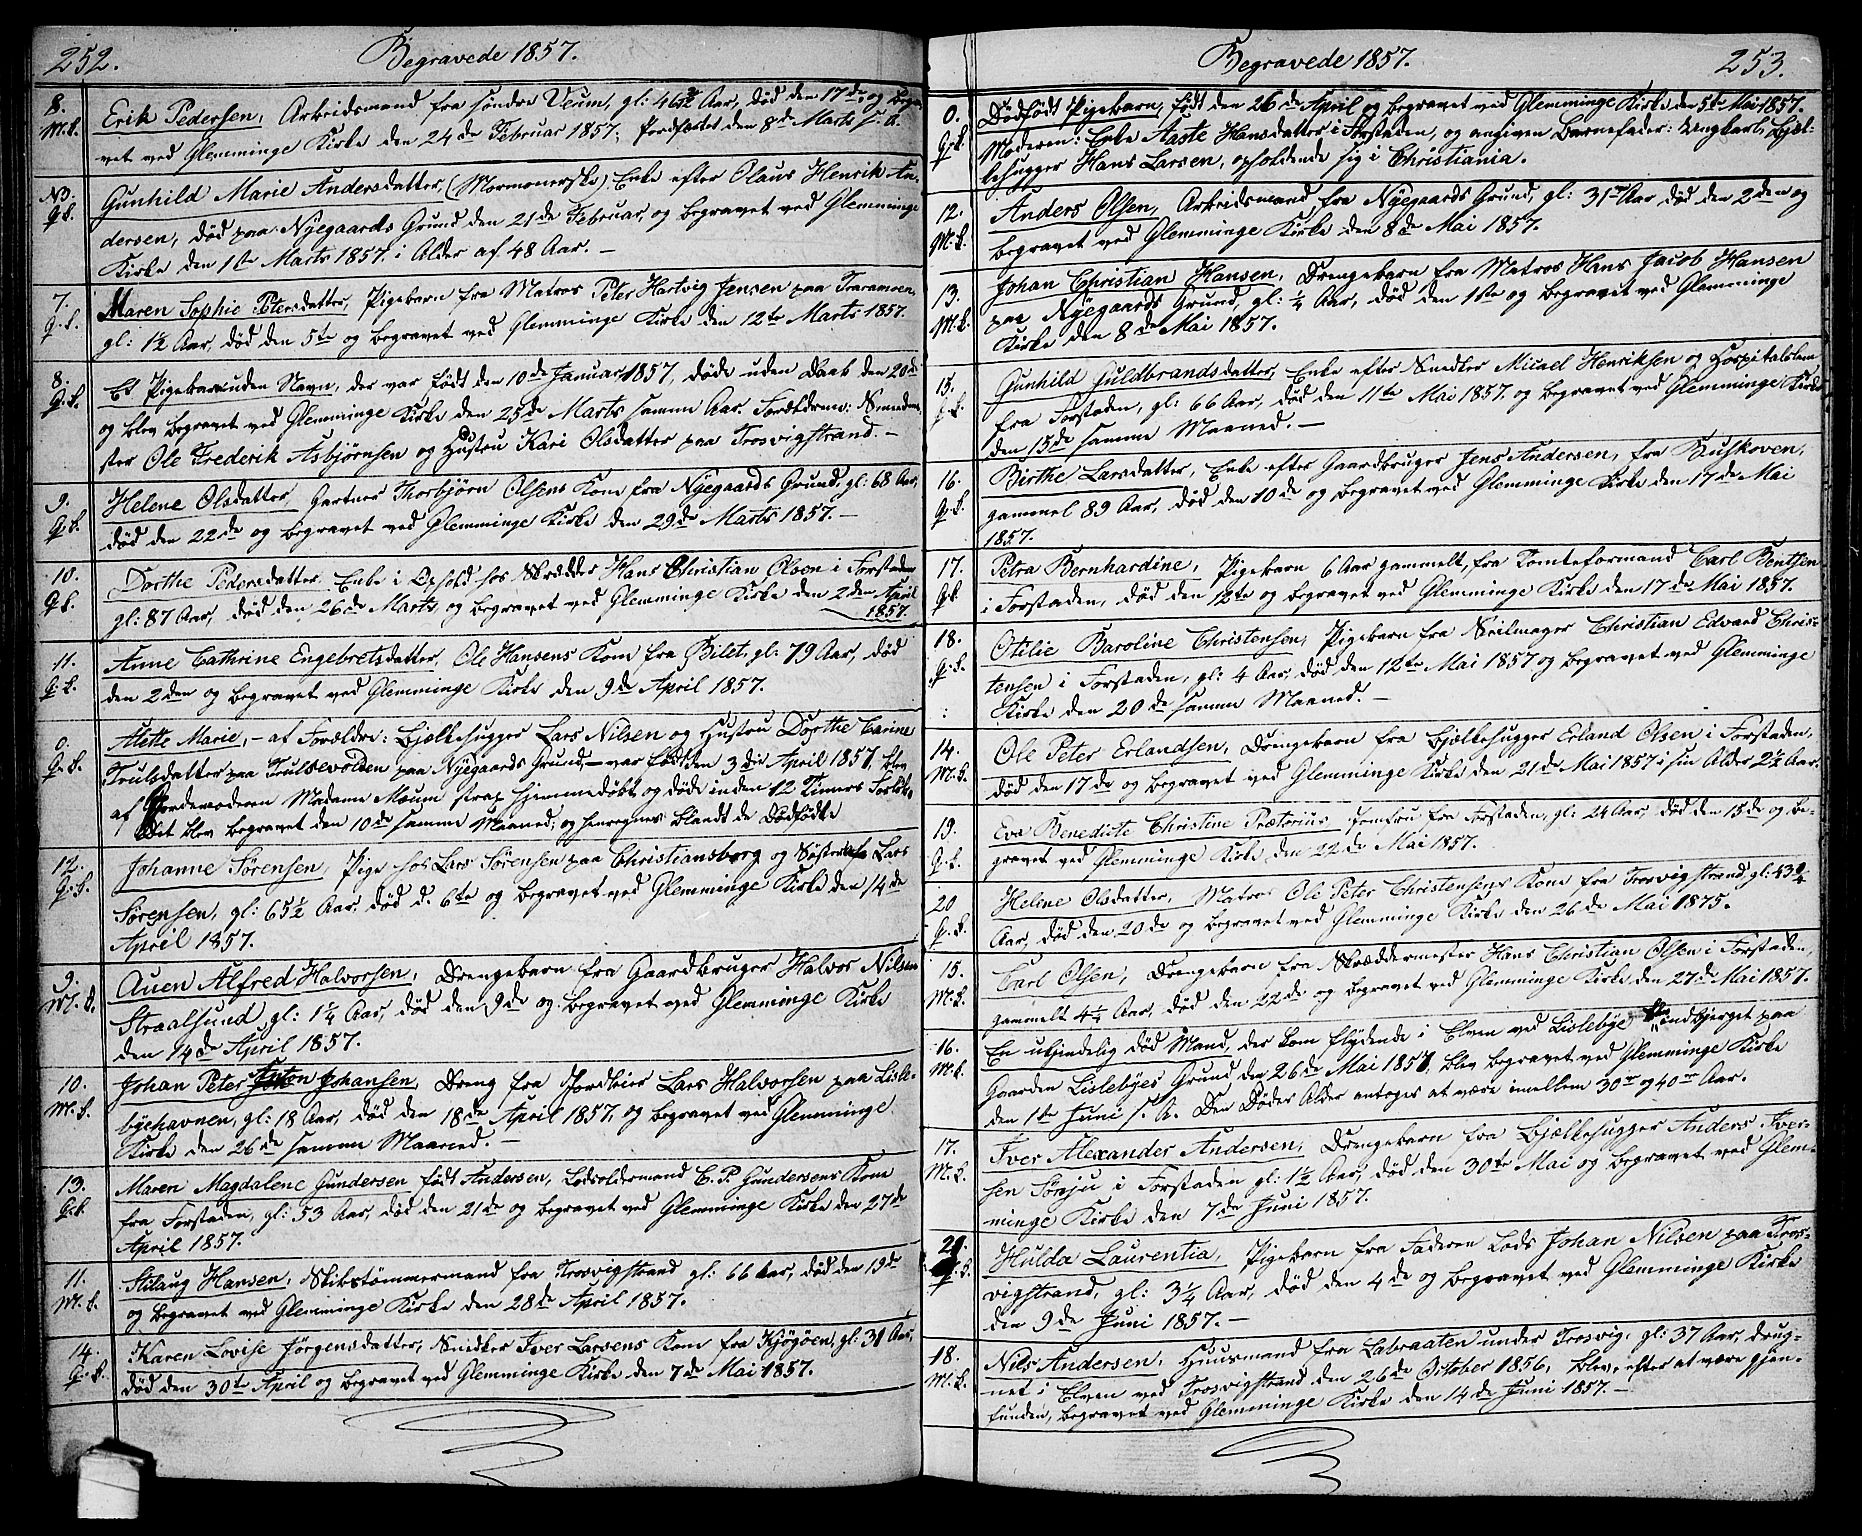 252.
Begravede 1857.
8.
M.k.
Erik Pedersen, Arbeidsmand fra søndre Veum, gl: 46 Aar, død den 17de, og begra-
vet ved Glemminge Kirke den 24de Februar 1857; Jordfæstet den 8de Marts s. A.
N3.
Q.k.
Gunhild Marie Andersdatter, (Mormonerske) Enke efter Olaus Henrik An-
dersen, død paa Nyegaards Grund den 21de Februar, og begravet ved Glemminge
Kirke den 1ste Marts 1857. i Alder af 48 Aar. –
7.
Q.k.
Maren Sophie Petersdatter, Pigebarn fra Matros Peter Hartvig Jensen paa Traramoen,
gl: 1½ Aar, død den 5te og begravet ved Glemminge Kirke den 12te Marts 1857.
8.
Q.k.
Et Pigebarn uden Navn, der var født den 10de Januar 1857, døde uden Daab den 20de
og blev begravet ved Glemminge Kirke den 25de Marts samme Aar. Forældrene:
Ole Frederik Asbjørnsen og Hustru Kari Olsdatter paa Trosvigstrand. –
9.
Q.k.
Helene Olsdatter, Gartner Thorbjørn Olsens Kone fra Nyegaards Grund, gl: 68 Aar,
død den 22de og begravet ved Glemminge Kirke den 29de Marts 1857. –
10.
Q.k.
Dorthe Pedersdatter, Enke i Ophold hos Skrædder Hans Christian Olsen i Forstaden
gl: 87 Aar, død den 26de Marts og begravet ved Glemminge Kirke den 2den April
1857.
11.
Q.k.
Anne Cathrine Engebretsdatter, Ole Hansens Kone fra Bilet, gl: 79 Aar, død
den 2den og begravet ved Glemminge Kirke den 9de April 1857.
0.
Q.k.
Alette Marie, – af Forældre: Bjælkehugger Lars Nilsen og Hustru Dorthe Carine
Trulsdatter paa Trulsevolden paa Nyegaards Grund, – var født den 3die April 1857, blev
af Jordemoderen Madame Moum strax hjemmedøbt og døde inden 12 Timers Forløb.
Det blev begravet den 10de samme Maaned, og henregnes blandt de Dødfødte
12.
Q.k.
Johanne Sørensen, Pige hos Lars Sørensen paa Christiansborg og Søster Lars
Sørensen, gl: 65½ Aar, død d. 6te og begravet ved Glemminge Kirke den 14de
April 1857.
9.
M.k.
Auen Alfred Halvorsen, Drengebarn fra Gaardbruger Halvor Nilsen
Straalsund, gl: 1¼ Aar, død den 9de og begravet ved Glemminge Kirke
den 14de April 1857.
10.
M.k.
Johan Peter Anton Johansen, Dreng fra Jordeier Lars Halvorsen paa Lisle-
byehavnen, gl: 18 Aar, død den 18de April 1857, og begravet ved Glemminge
Kirke den 26de samme Maaned. –
13.
Q.k.
Maren Magdalene Gundersen født Andersen, Lodsoldermand C. P. Gundersens Kone
fra Forstaden, gl: 53 Aar, død den 21de og begravet ved Glemminge Kirke den 27de
April 1857.
11.
M.k.
Stilaug Hansen, Skibstømmermand fra Trosvigstrand gl: 66 Aar, død den 19de
og begravet ved Glemminge Kirke den 28de April 1857.
14.
Q.k.
Karen Lovise Jørgensdatter, Snedker Iver Larsens Kone fra Kjøgøen, gl: 31 Aar,
død den 30te April og begravet ved Glemminge Kirke den 7de Mai 1857.
Begravede 1857.
253.
0.
Q.k.
Dødfødt Pigebarn, født den 26de April og begravet ved Glemminge Kirke den 5te Mai 1857.
Moderen: Enke Aaste Hansdatter i Forstaden, og angiven Barnefader: Ungkarl, Bjæl-
kehugger Hans Larsen, opholdende sig i Christiania.
12.
M.k.
Anders Olsen, Arbeidsmand fra Nyegaards Grund, gl: 31 Aar død den 2den og
begravet ved Glemminge Kirke den 8de Mai 1857.
13.
M.k.
Johan Christian Hansen, Drengebarn fra Matros Hans Jacob Hansen
paa Nyegaards Grund, gl: ¼ Aar, død den 1ste og begravet ved Glemminge
Kirke den 8de Mai 1857.
15.
Q.k.
Gunhild Guldbrandsdatter, Enke efter Snedker Micael Henriksen og Hospitalslem
fra Forstaden, gl: 66 Aar, død den 11te Mai 1857 og begravet ved Glemminge Kirke
den 15de samme Maaned. –
16.
Q.k.
Birthe Larsdatter, Enke efter Gaardbruger Jens Andersen, fra Buskoven,
gammel 89 Aar, død den 10de og begravet ved Glemminge Kirke den 17de Mai
1857.
17.
Q.k.
Petra Bernhardine, Pigebarn 6 Aar gammelt, fra Tomteformand Carl Bentsen
i Forstaden, død den 12te og begravet ved Glemminge Kirke den 17de Mai 1857.
18.
Q.k.
Otilie Baroline Christensen, Pigebarn fra Seilmager Christian Edvard Chris-
tensen i Forstaden, gl: 4 Aar, død den 12te Mai 1857 og begravet ved Glemminge
Kirke den 20de samme Maaned. –
14.
M.k.
Ole Peter Erlandsen, Drengebarn fra Bjælkehugger Erland Olsen i Forstaden,
død den 17de og begravet ved Glemminge Kirke den 21de Mai 1857 i sin Alder 2½ Aar.
19.
Q.k.
Eva Benedicte Christine Prætorius, Jomfru fra Forstaden, gl: 24 Aar, død den 15de og be-
gravet ved Glemminge Kirke den 22de Mai 1857.
20
Q.k.
Heline Olsdatter, Matros Ole Peter Christensens Kone fra Trosvigstrand, gl: 43¾
Aar, død den 20de og begravet ved Glemminge Kirke den 26de Mai 1875.
15.
M.k.
Carl Olsen, Drengebarn fra Skræddermester Hans Christian Olsen i Forstaden,
gammelt 4¼ Aar, død den 22de og begravet ved Glemminge Kirke den 27de Mai 1857.
16.
M.k.
En ukjendelig død Mand, der kom flydende i Elven ved Lislebye indbjerget paa
Gaarden Lislebyes Grund den 26de Mai 1857, blev begravet ved Glemminge Kirke
den 1ste Juni s. A. Den Dødes Alder antages at være imellem 30 og 40 Aar.
17.
M.k.
Iver Alexander Andersen, Drengebarn fra Bjælkehugger Anders Iver-
sen Sonju i Forstaden gl: 1½ Aar, død den 30te Mai og begravet ved Glem-
minge Kirke den 7de Juni 1857.
21.
Q.k.
Hulda Laurentia, Pigebarn fra Faderen Lods Johan Nilsen paa Tros-
vigstrand, gl: 3¼ Aar, død den 4de og begravet ved Glemminge Kirke
den 9de Juni 1857. –
18.
M.k.
Nils Andersen, Huusmand fra Labraaten under Trosvig, gl: 37 Aar, druk-
net i Elven ved Trosvigstrand den 26de October 1856, blev, efter at være gjen-
funden, begravet ved Glemminge Kirke den 14de Juni 1857. –